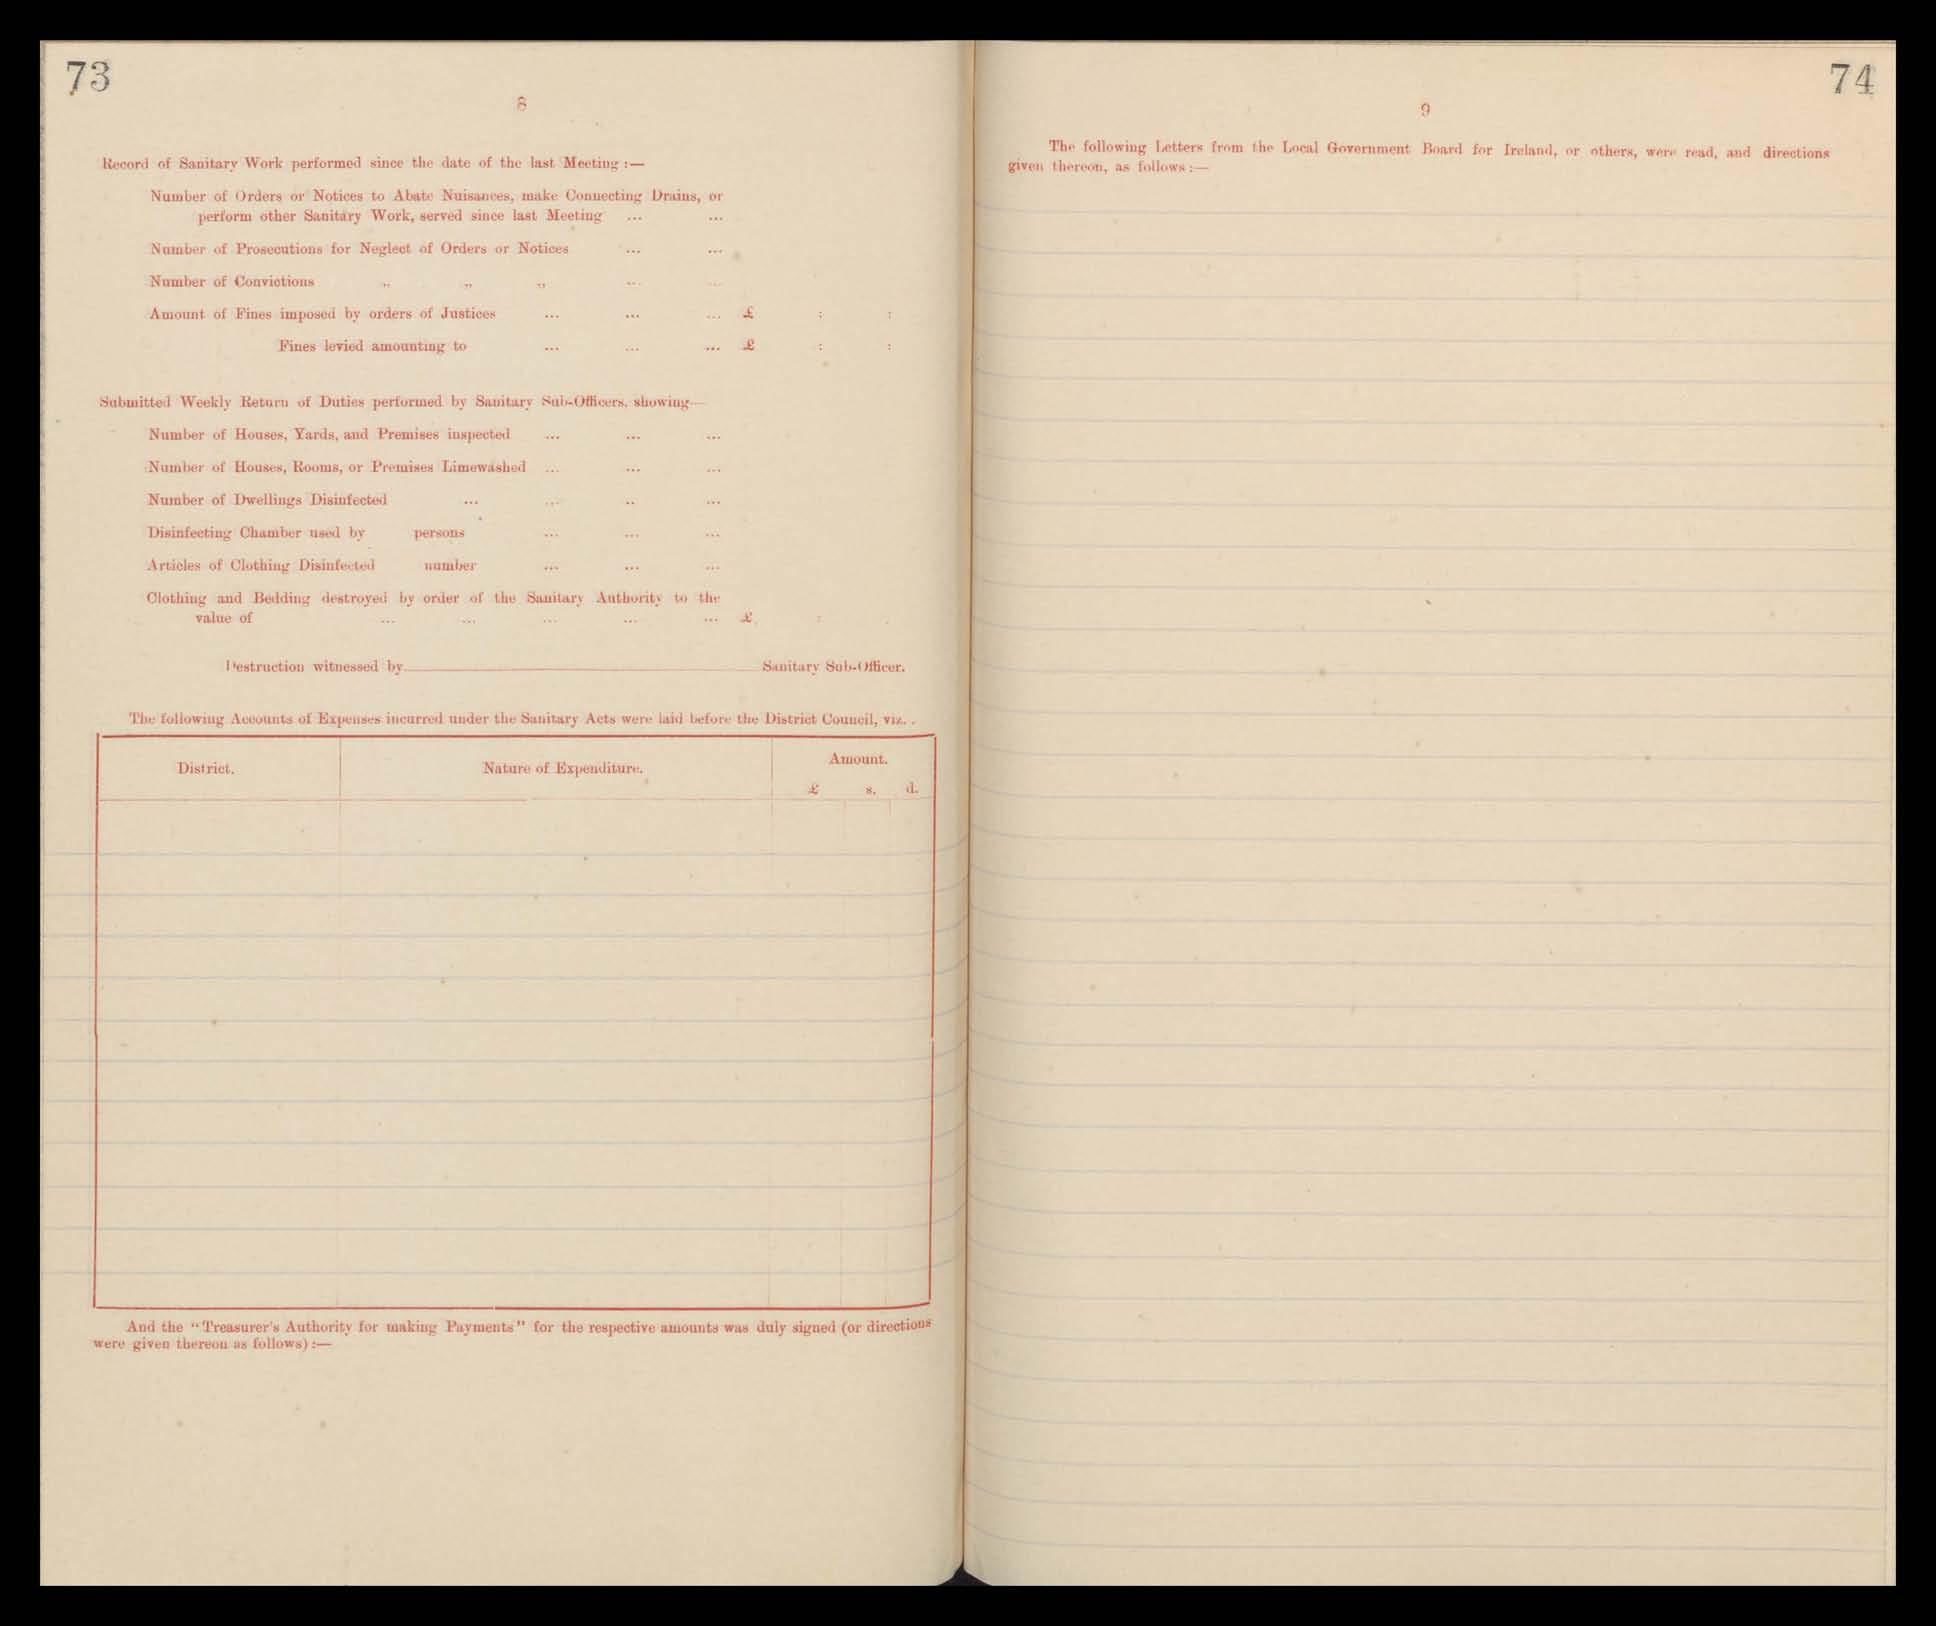 73
8
Record of Sanitary Work performed since the date of the last Meeting :—
Number of Orders or Notices to Abate Nuisances, make Connecting Drains, or
perform other Sanitary Work, served since last Meeting ... ...
Number of Prosecutions for Neglect of Orders or Notices ... ...
Number of Convictions „ „ „ ... ...
Amount of Fines imposed by orders of Justices ... ... ... £ : :
Fines levied amounting to ... ... ... £ : :
Submitted Weekly Return of Duties performed by Sanitary Sub-Officers, showing—
Number of Houses, Yards, and Premises inspected ... ... ...
Number of Houses, Rooms, or Premises Limewashed ... ... ...
Number of Dwellings Disinfected ... ... .. ...
Disinfecting Chamber used by persons ... ... ...
Articles of Clothing Disinfected number ... ... ...
Clothing and Bedding destroyed by order of the Sanitary Authority to the
value of ... ... ... ... ... £ :
Destruction witnessed by Sanitary Sub-Officer.
The following Accounts of Expenses incurred under the Sanitary Acts were laid before the District Council, viz. .
District. Nature of Expenditure. Amount.
£ s. d.
And the "Treasurer's Authority for making Payments" for the respective amounts was duly signed (or directions
were given thereon as follows) :—
74
9
The following Letters from the Local Government Board for Ireland, or others, were read, and directions
given thereon, as follows :—